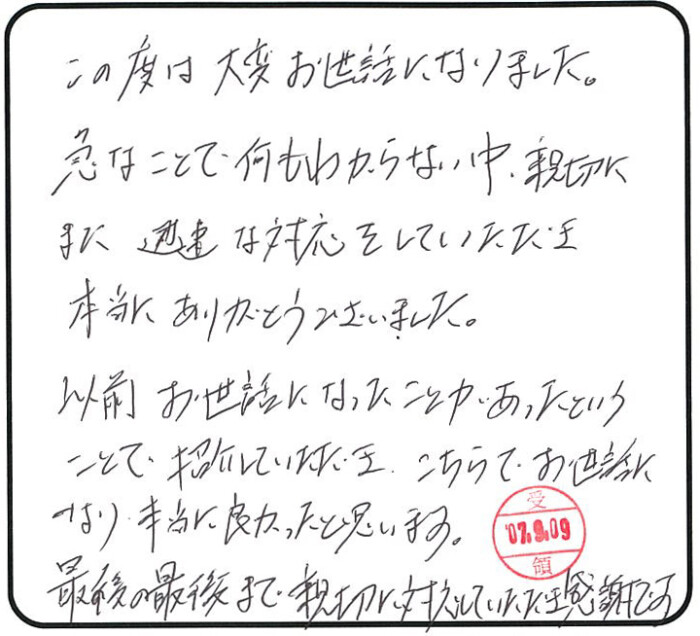 この度は大変お世話になりました。
急なことで何もわからない中、親切に
また迅速な対応をしていただき
本当にありがとうございました。
以前お世話になったことがあったという
ことで紹介していただき、こちらでお世話に
なり本当に良かったと思います。
受
'07.9.09
領
最後の最後まで親切に対応していただき感謝です